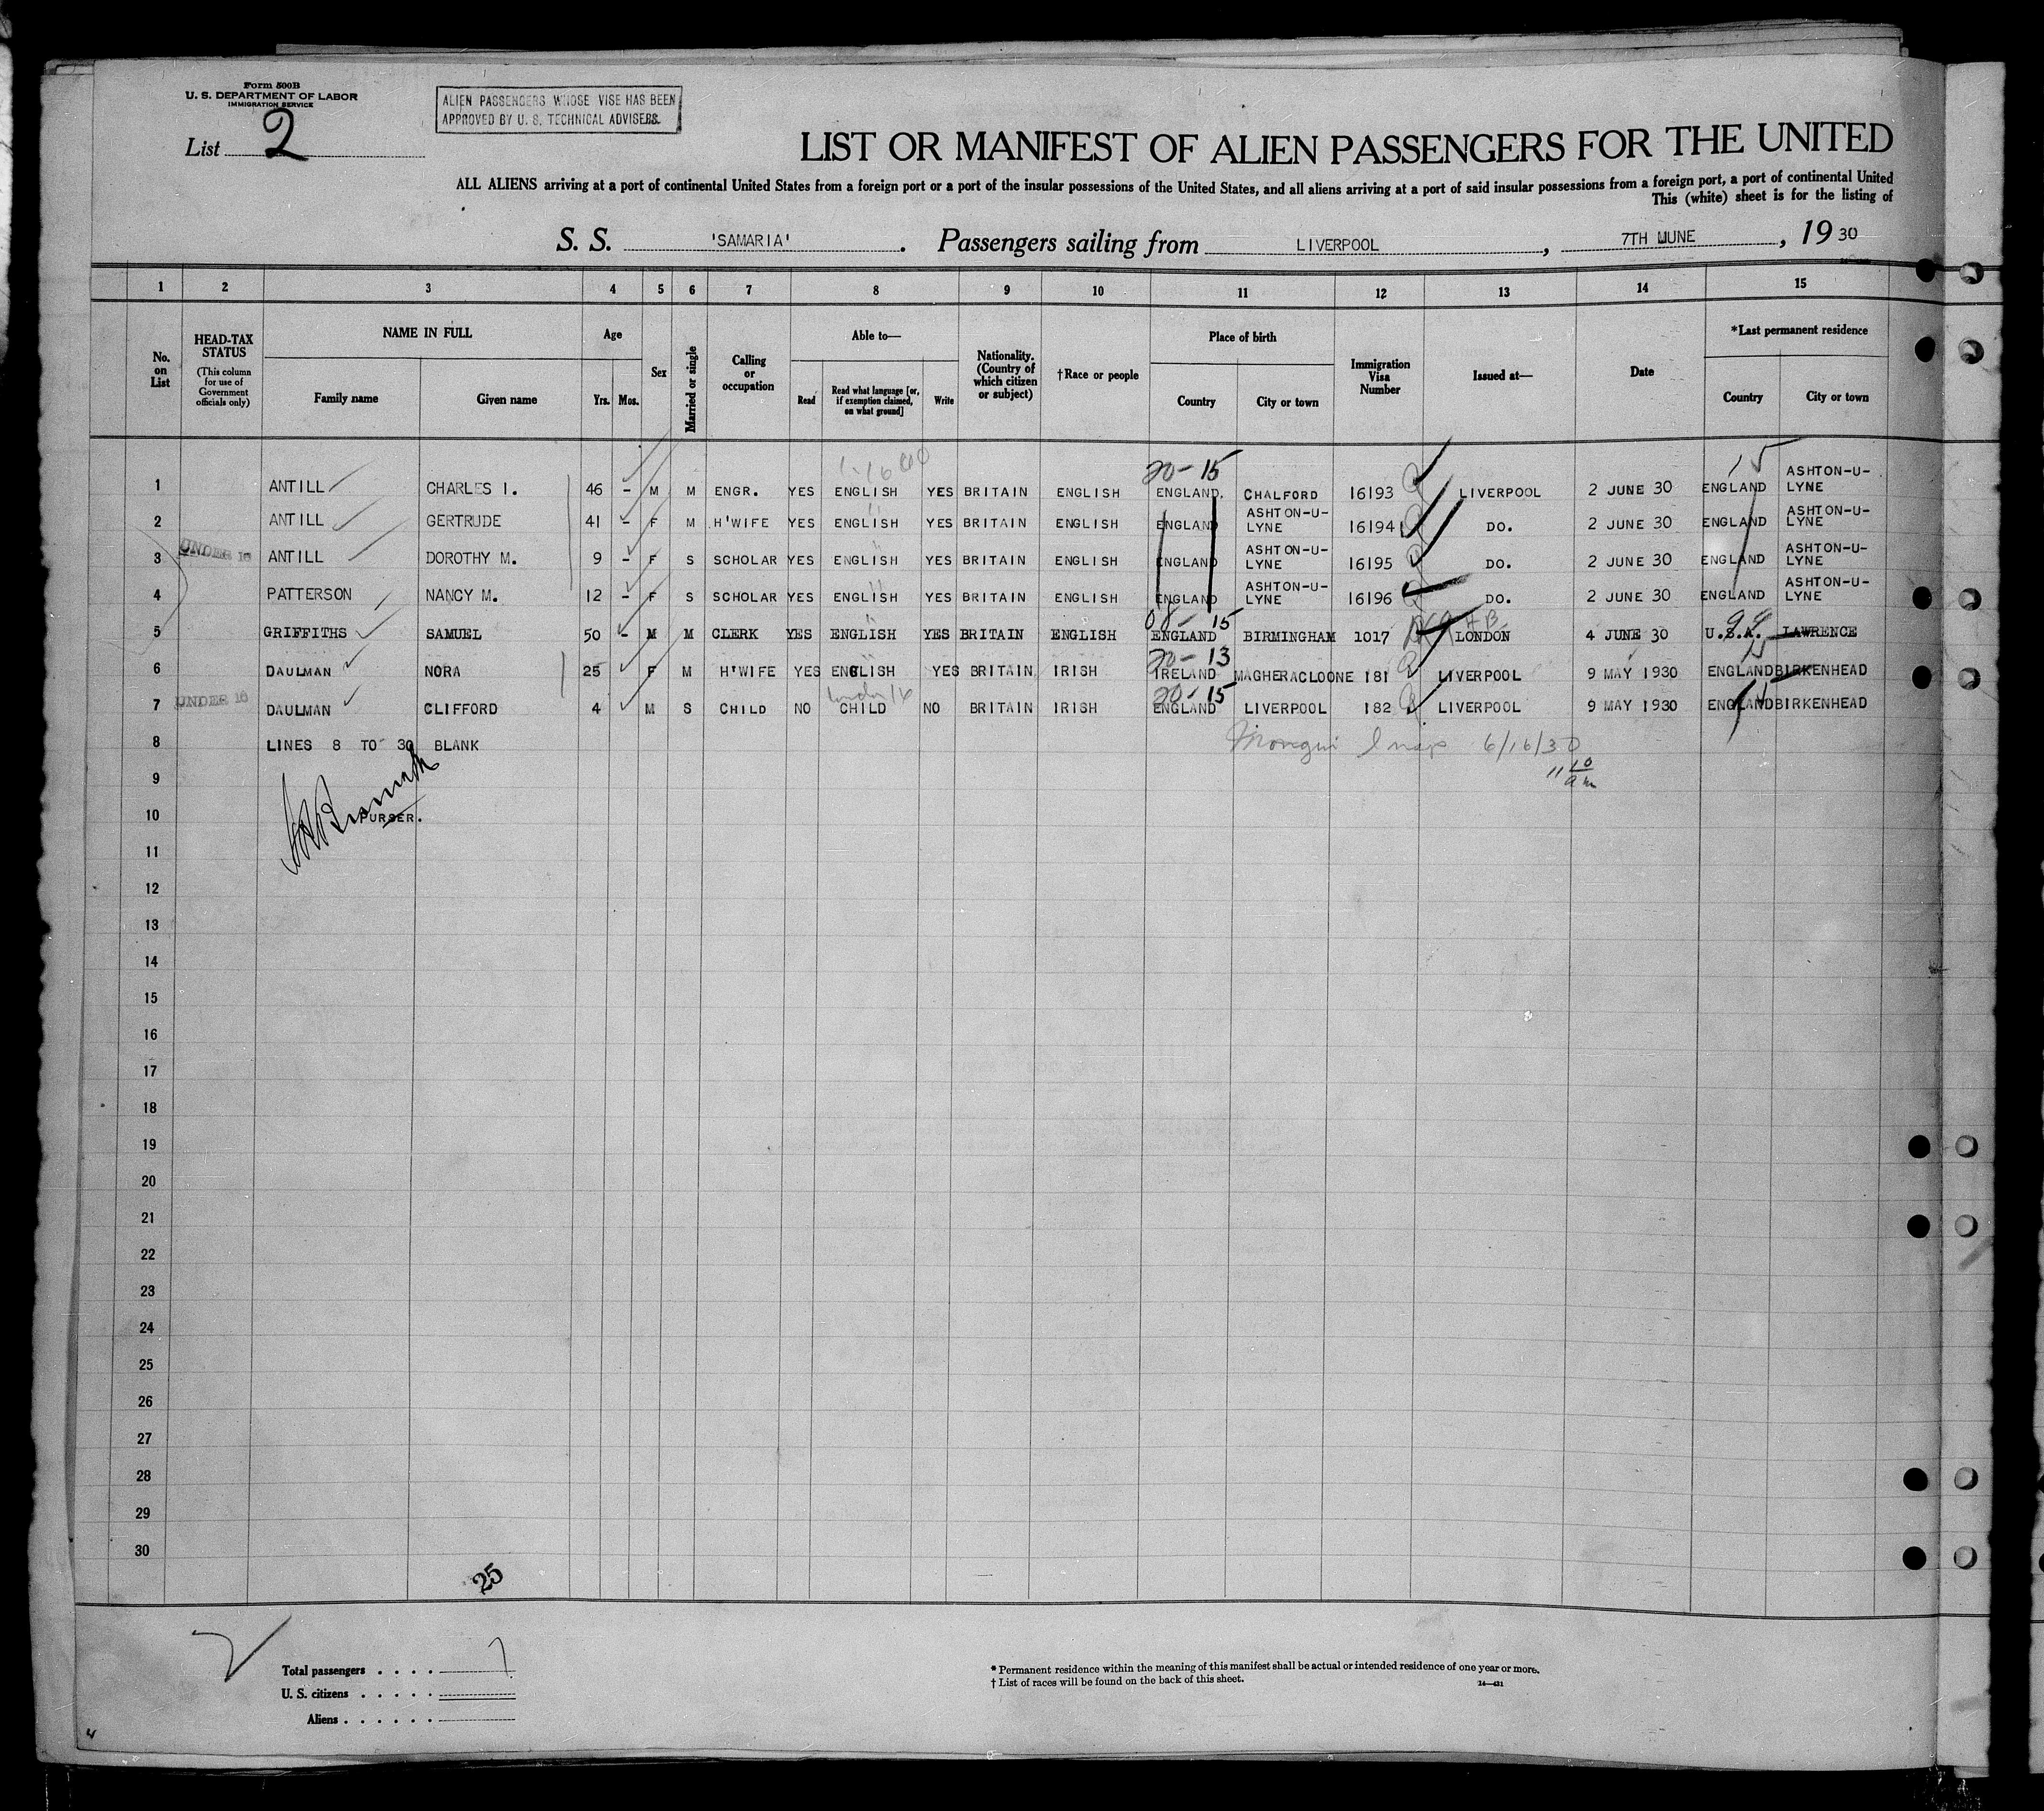 Form 500B
U. S. DEPARTMENT OF LABOR
IMMIGRATION SERVICE
List 2
ALIEN PASSENGERS WHOSE VISE HAS BEEN
APPROVED BY U. S. TECHNICAL ADVISERS.
LIST OR MANIFEST OF ALIEN PASSENGERS FOR THE UNITED
ALL ALIENS arriving at a port of continental United States from a foreign port or a port of the insular possessions of the United States, and all aliens arriving at a port of said insular possessions from a foreign port, a port of continental United
This (white) sheet is for the listing of
S. S. 'SAMARIA'. Passengers sailing from LIVERPOOL, 7TH JUNE, 19 30
1 2 3 4 5 6 7 8 9 10 11 12 13 14 15
No. on List
HEAD-TAX STATUS
(This column for use of Government officials only)
NAME IN FULL
Family name Given name
Age
Yrs. Mos.
Sex
Married or single
Calling or occupation
Able to—
Read Read what language [or, if exemption claimed, on what ground] Write
Nationality. (Country of which citizen or subject)
†Race or people
Place of birth
Country City or town
Immigration Visa Number
Issued at—
Date
*Last permanent residence
Country City or town
20-15 15
1 ANTILL CHARLES I. 46 - M M ENGR. YES ENGLISH YES BRITAIN ENGLISH ENGLAND. CHALFORD 16193 LIVERPOOL 2 JUNE 30 ENGLAND ASHTON-U-LYNE
2 ANTILL GERTRUDE 41 - F M H'WIFE YES ENGLISH YES BRITAIN ENGLISH ENGLAND ASHTON-U-LYNE 16194 DO. 2 JUNE 30 ENGLAND ASHTON-U-LYNE
3 UNDER 16 ANTILL DOROTHY M. 9 - F S SCHOLAR YES ENGLISH YES BRITAIN ENGLISH ENGLAND ASHTON-U-LYNE 16195 DO. 2 JUNE 30 ENGLAND ASHTON-U-LYNE
4 PATTERSON NANCY M. 12 - F S SCHOLAR YES ENGLISH YES BRITAIN ENGLISH ENGLAND ASHTON-U-LYNE 16196 DO. 2 JUNE 30 ENGLAND ASHTON-U-LYNE
08-15 99
5 GRIFFITHS SAMUEL 50 - M M CLERK YES ENGLISH YES BRITAIN ENGLISH ENGLAND BIRMINGHAM 1017 LONDON 4 JUNE 30 U.S.A. LAWRENCE
20-13 15
6 DAULMAN NORA 25 F M H'WIFE YES ENGLISH YES BRITAIN IRISH IRELAND MAGHERACLOONE 181 LIVERPOOL 9 MAY 1930 ENGLAND BIRKENHEAD
under 16 20-15
7 UNDER 16 DAULMAN CLIFFORD 4 M S CHILD NO CHILD NO BRITAIN IRISH ENGLAND LIVERPOOL 182 LIVERPOOL 9 MAY 1930 ENGLAND BIRKENHEAD
8 LINES 8 TO 30 BLANK
6/16/30
11 10 am
9
10 PURSER.
11
12
13
14
15
16
17
18
19
20
21
22
23
24
25
26
27
28
29
30
25
Total passengers . . . . 7
U. S. citizens . . . . .
Aliens . . . . . .
* Permanent residence within the meaning of this manifest shall be actual or intended residence of one year or more.
† List of races will be found on the back of this sheet.
14—421